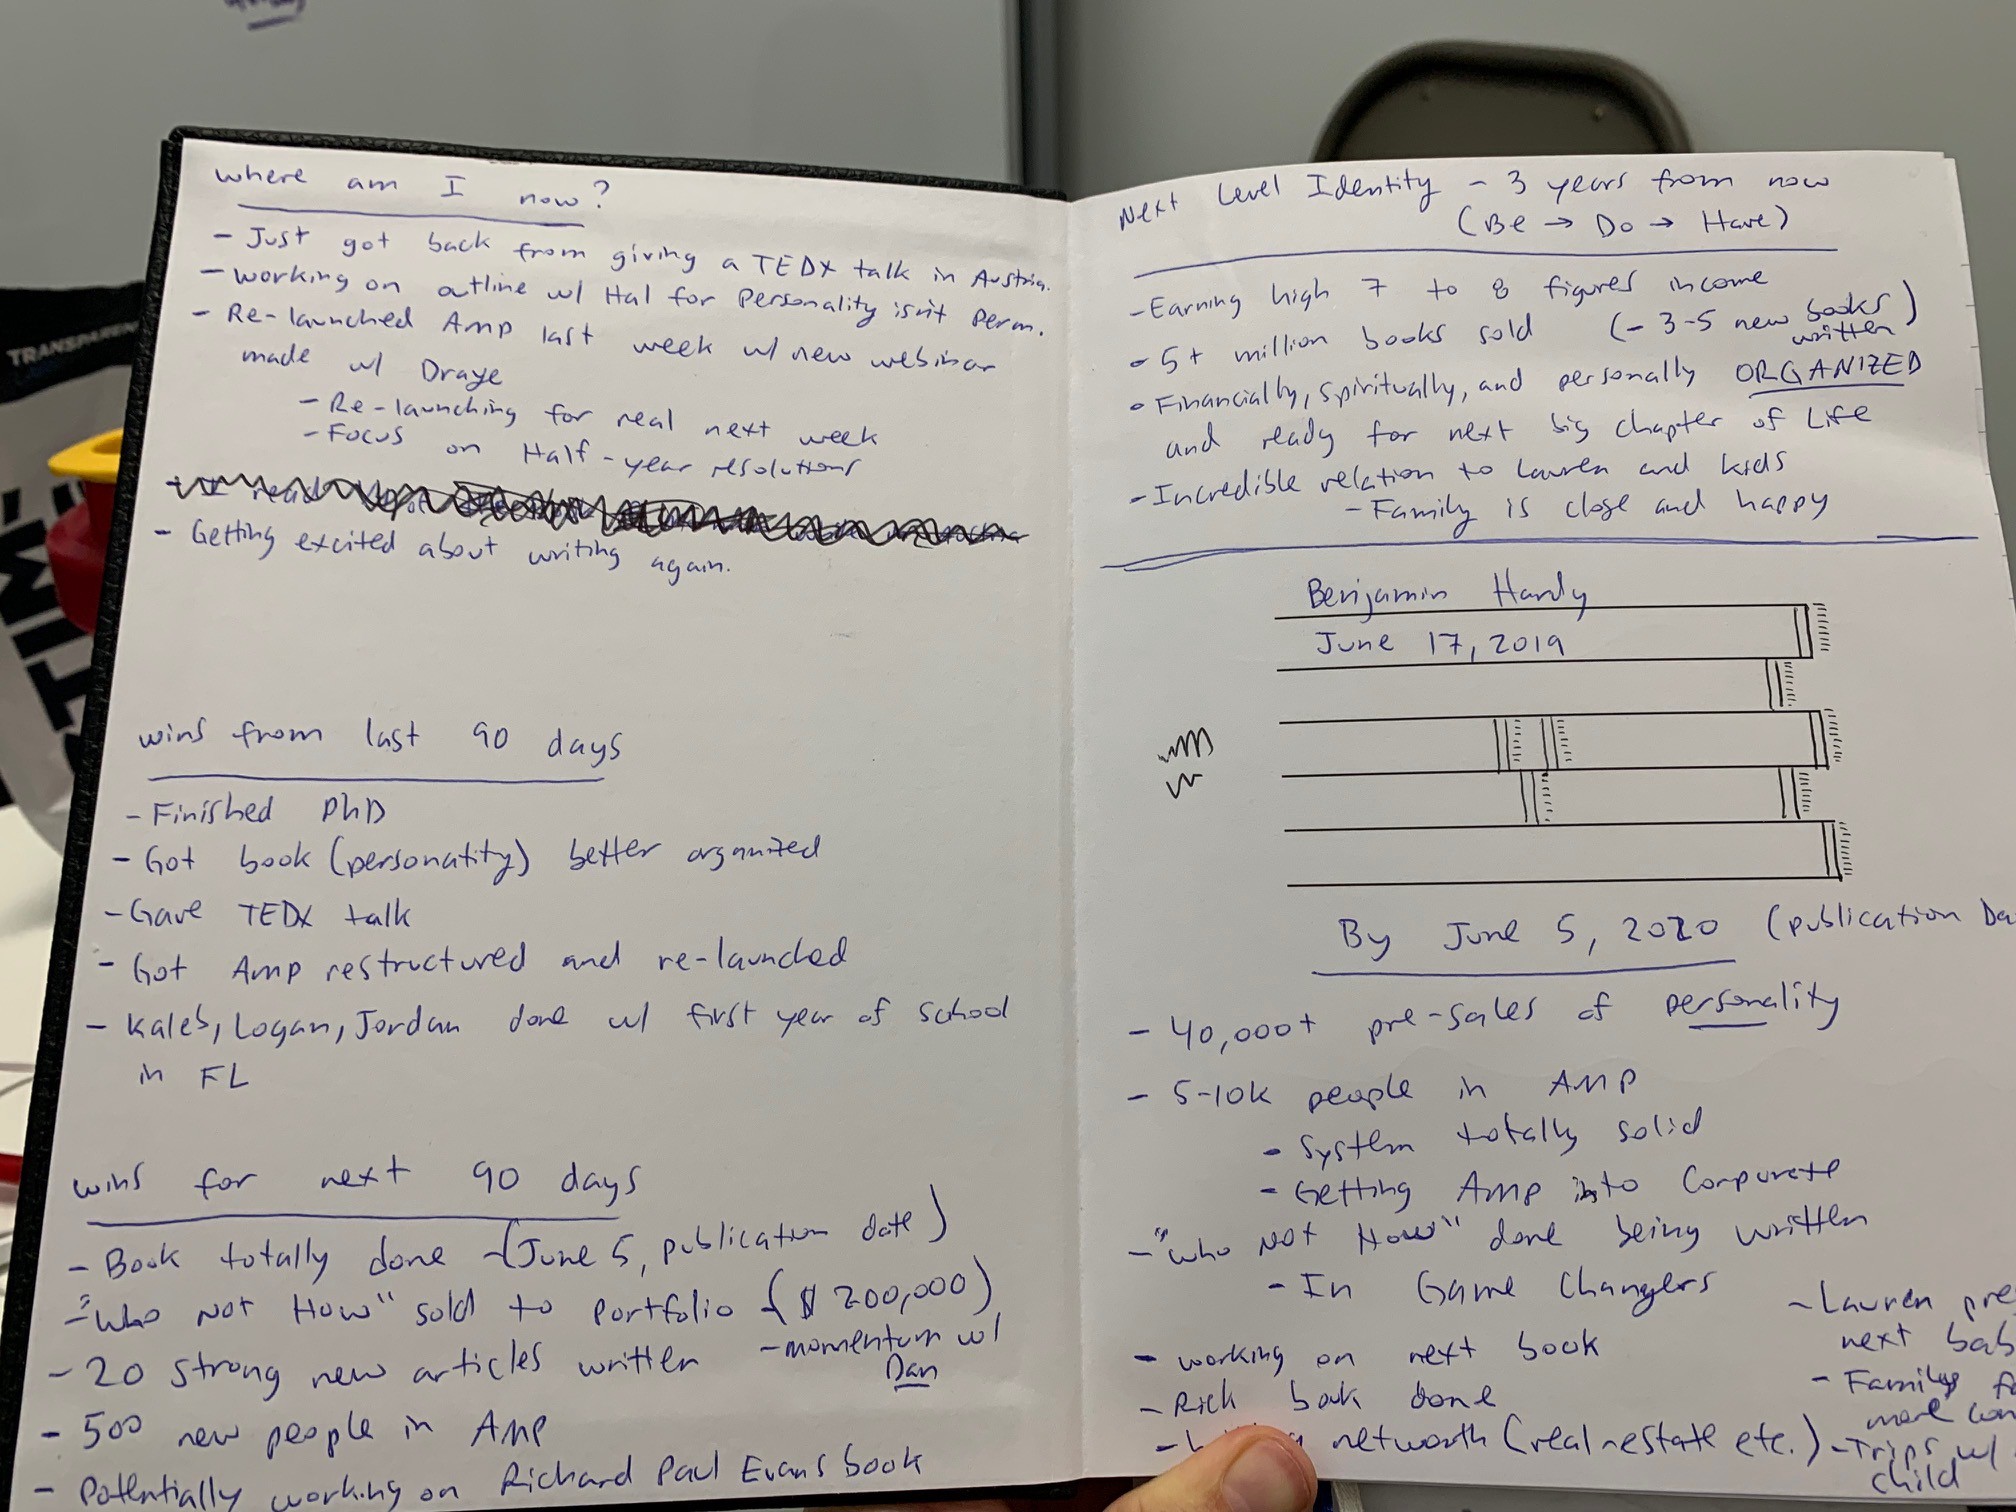 where am I now?
- Just got back from giving a TEDx talk in Austria.
- working on outline w/ Hal for Personality isn't Perm.
- Re-launched Amp last week w/ new webinar
made w/ Draye
- Re-launching for real next week
- Focus on Half-year resolutions
- Getting excited about writing again.
wins from last 90 days
- Finished PhD
- Got book (personality) better organized
- Gave TEDx talk
- Got Amp restructured and re-launched
- Kaleb, Logan, Jordan done w/ first year of school
in FL
wins for next 90 days
- Book totally done - (June 5, publication date)
- "Who Not How" sold to Portfolio - ($200,000)
- 20 strong new articles written
- momentum w/
Dan
- 500 new people in AMP
- Potentially working on Richard Paul Evans book
Next Level Identity - 3 years from now
(Be → Do → Have)
- Earning high 7 to 8 figures income
- 5+ million books sold (- 3-5 new books
written)
- Financially, spiritually, and personally ORGANIZED
and ready for next big chapter of Life
- Incredible relation to Lauren and kids
- Family is close and happy
Benjamin Hardy
June 17, 2019
By June 5, 2020 (publication Da
- 40,000+ pre-sales of personality
- 5-10k people in AMP
- System totally solid
- Getting Amp into Corporate
- "Who Not How" done being written
- In Game Changers
- working on next book
- Rich book done
networth (real estate etc.)
- Lauren pre
next bab
- Family
more con
- Trips w/
child
TRANSPAREN